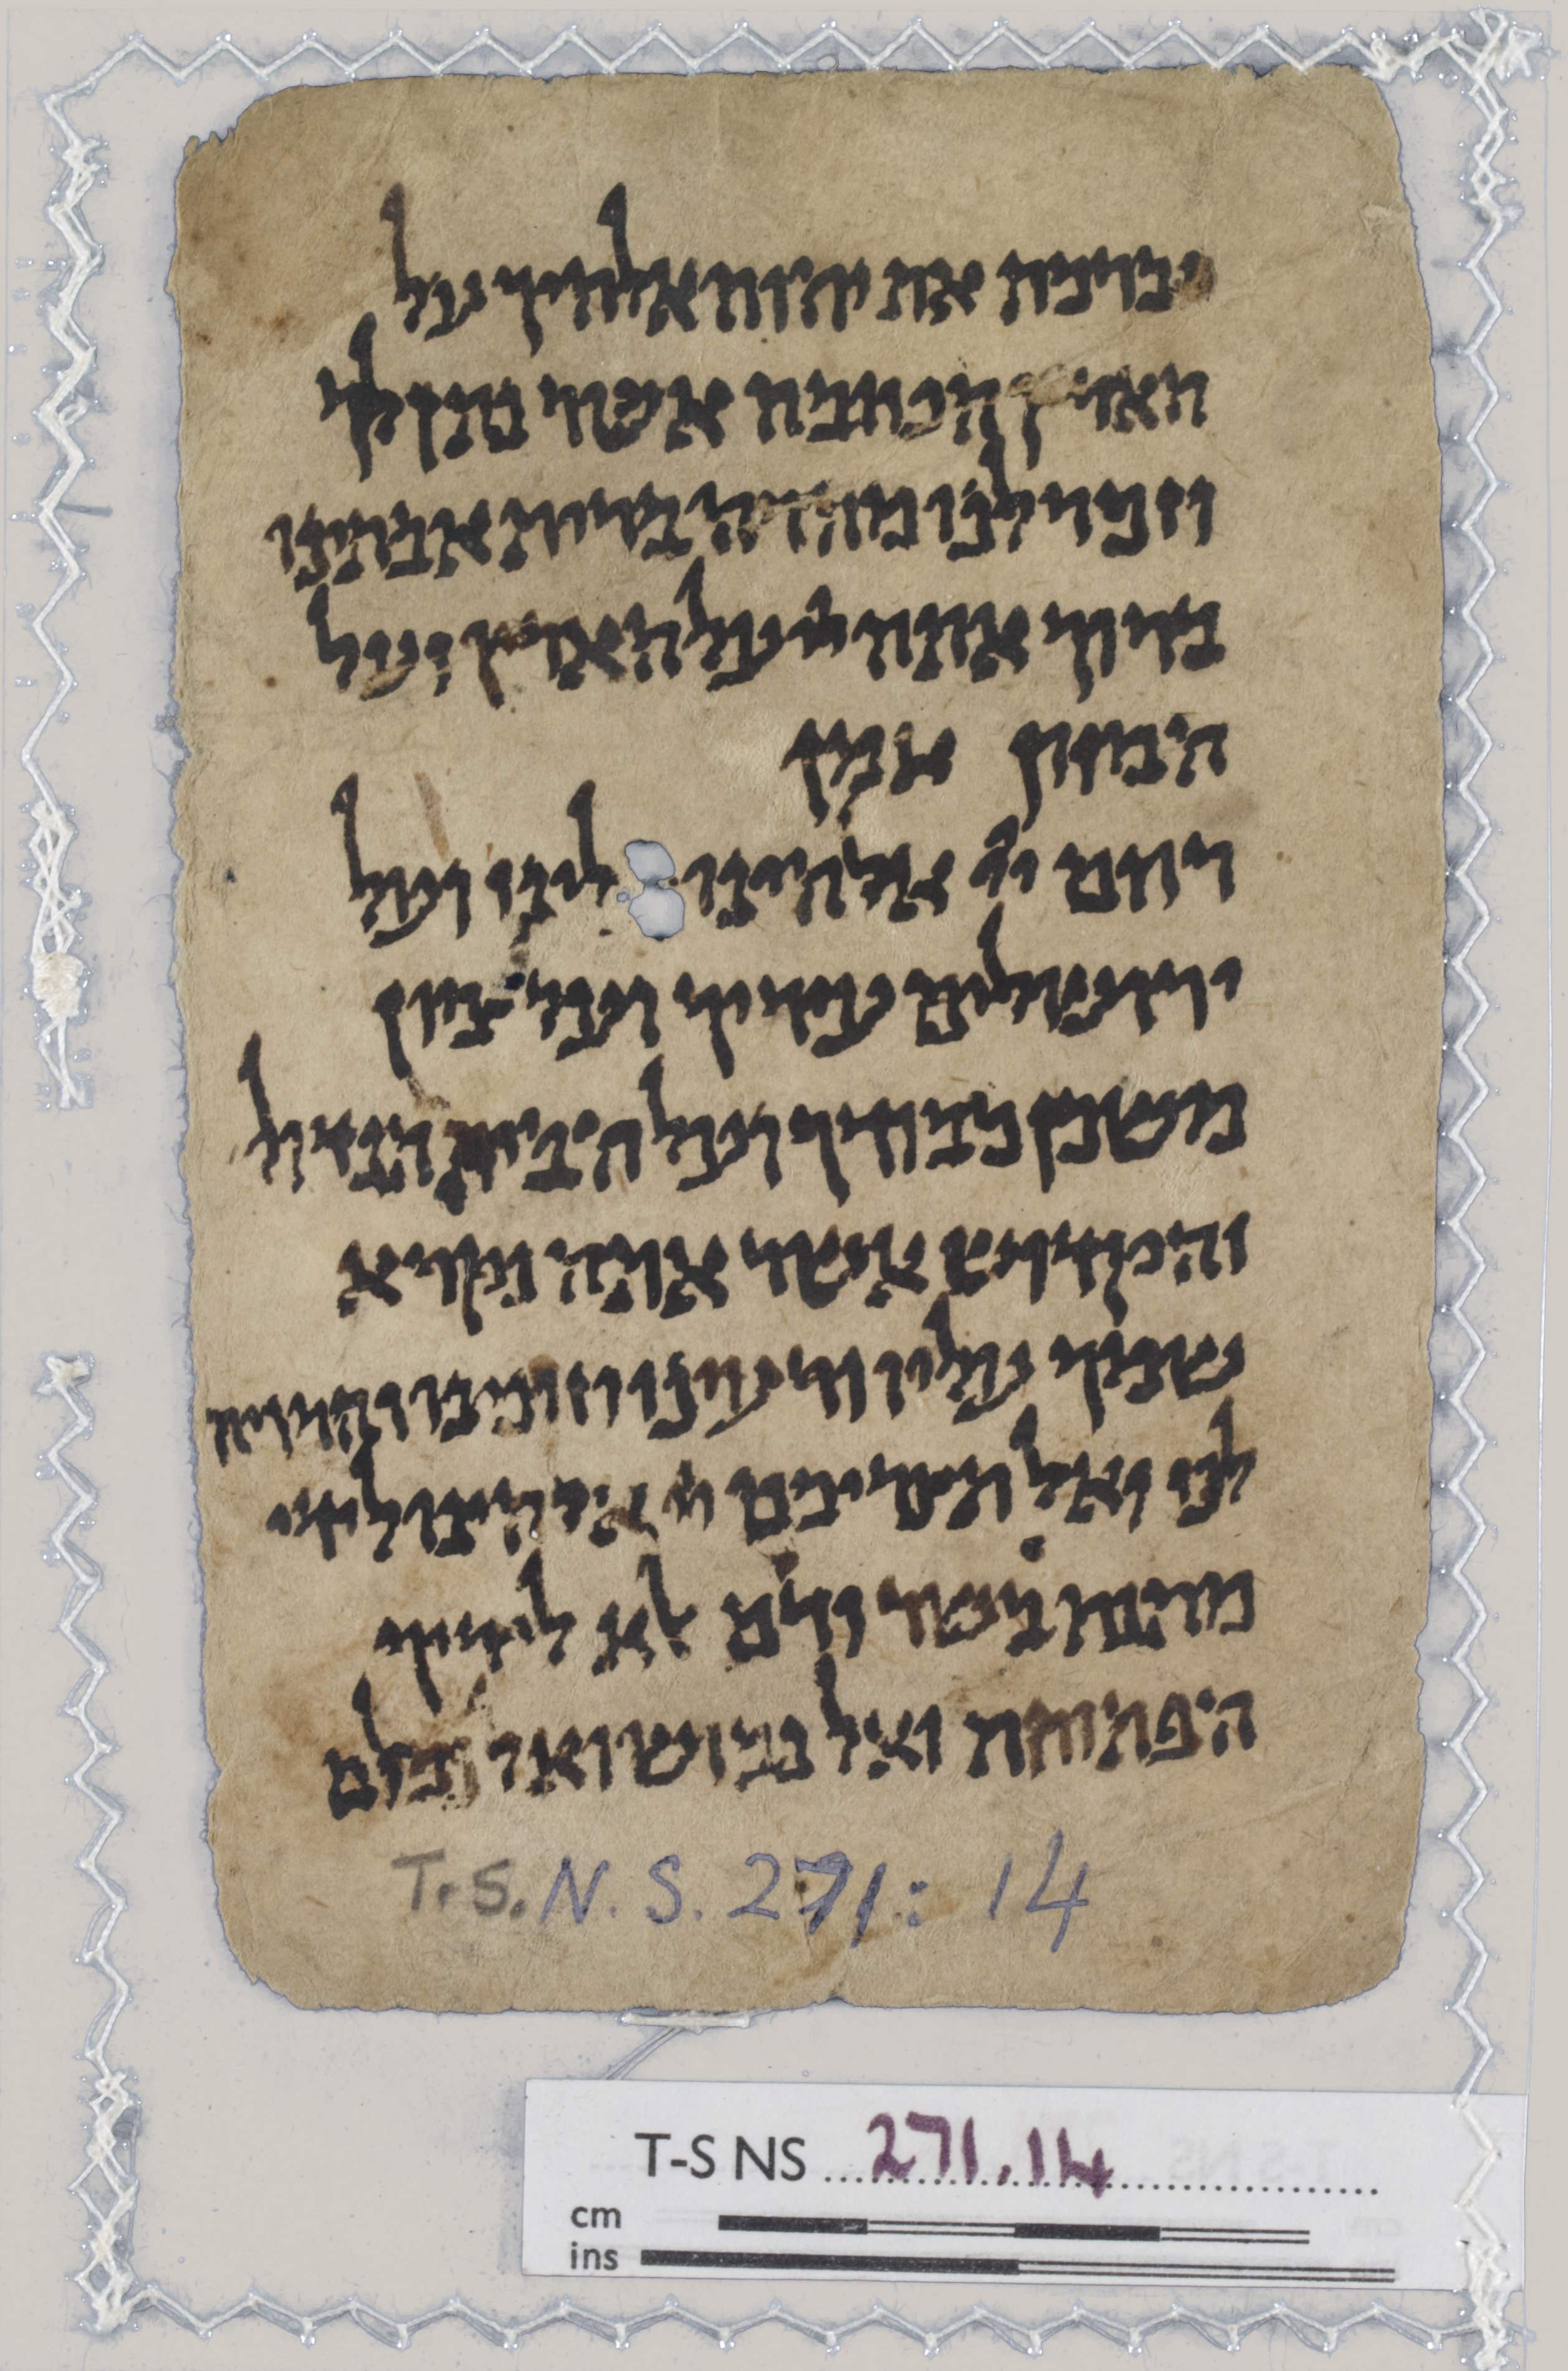 וברכת את יהוה אלהיך על
הארץ הטובה אשר נתן לך
וזכור לנו מהרה ברית אבתינו
ברוך אתה יי על הארץ ועל
המזון אמן
רחם ייי אלהינו עלינו ועל
ירושלים עירך ועל ציון
משכן כבודך ועל הבית הגדול
והקדוש אשר אתה נקרא
שמך עליו רעינו וזונינו והרויח
לנו ואל תצריכם יי אלהינו לידי
מתנת בשר ודם לא לידיך
הפתוחת ואל נבוש ואל נכלם
T.S. N.S. 271: 14
T-S NS 271.14
cm
ins